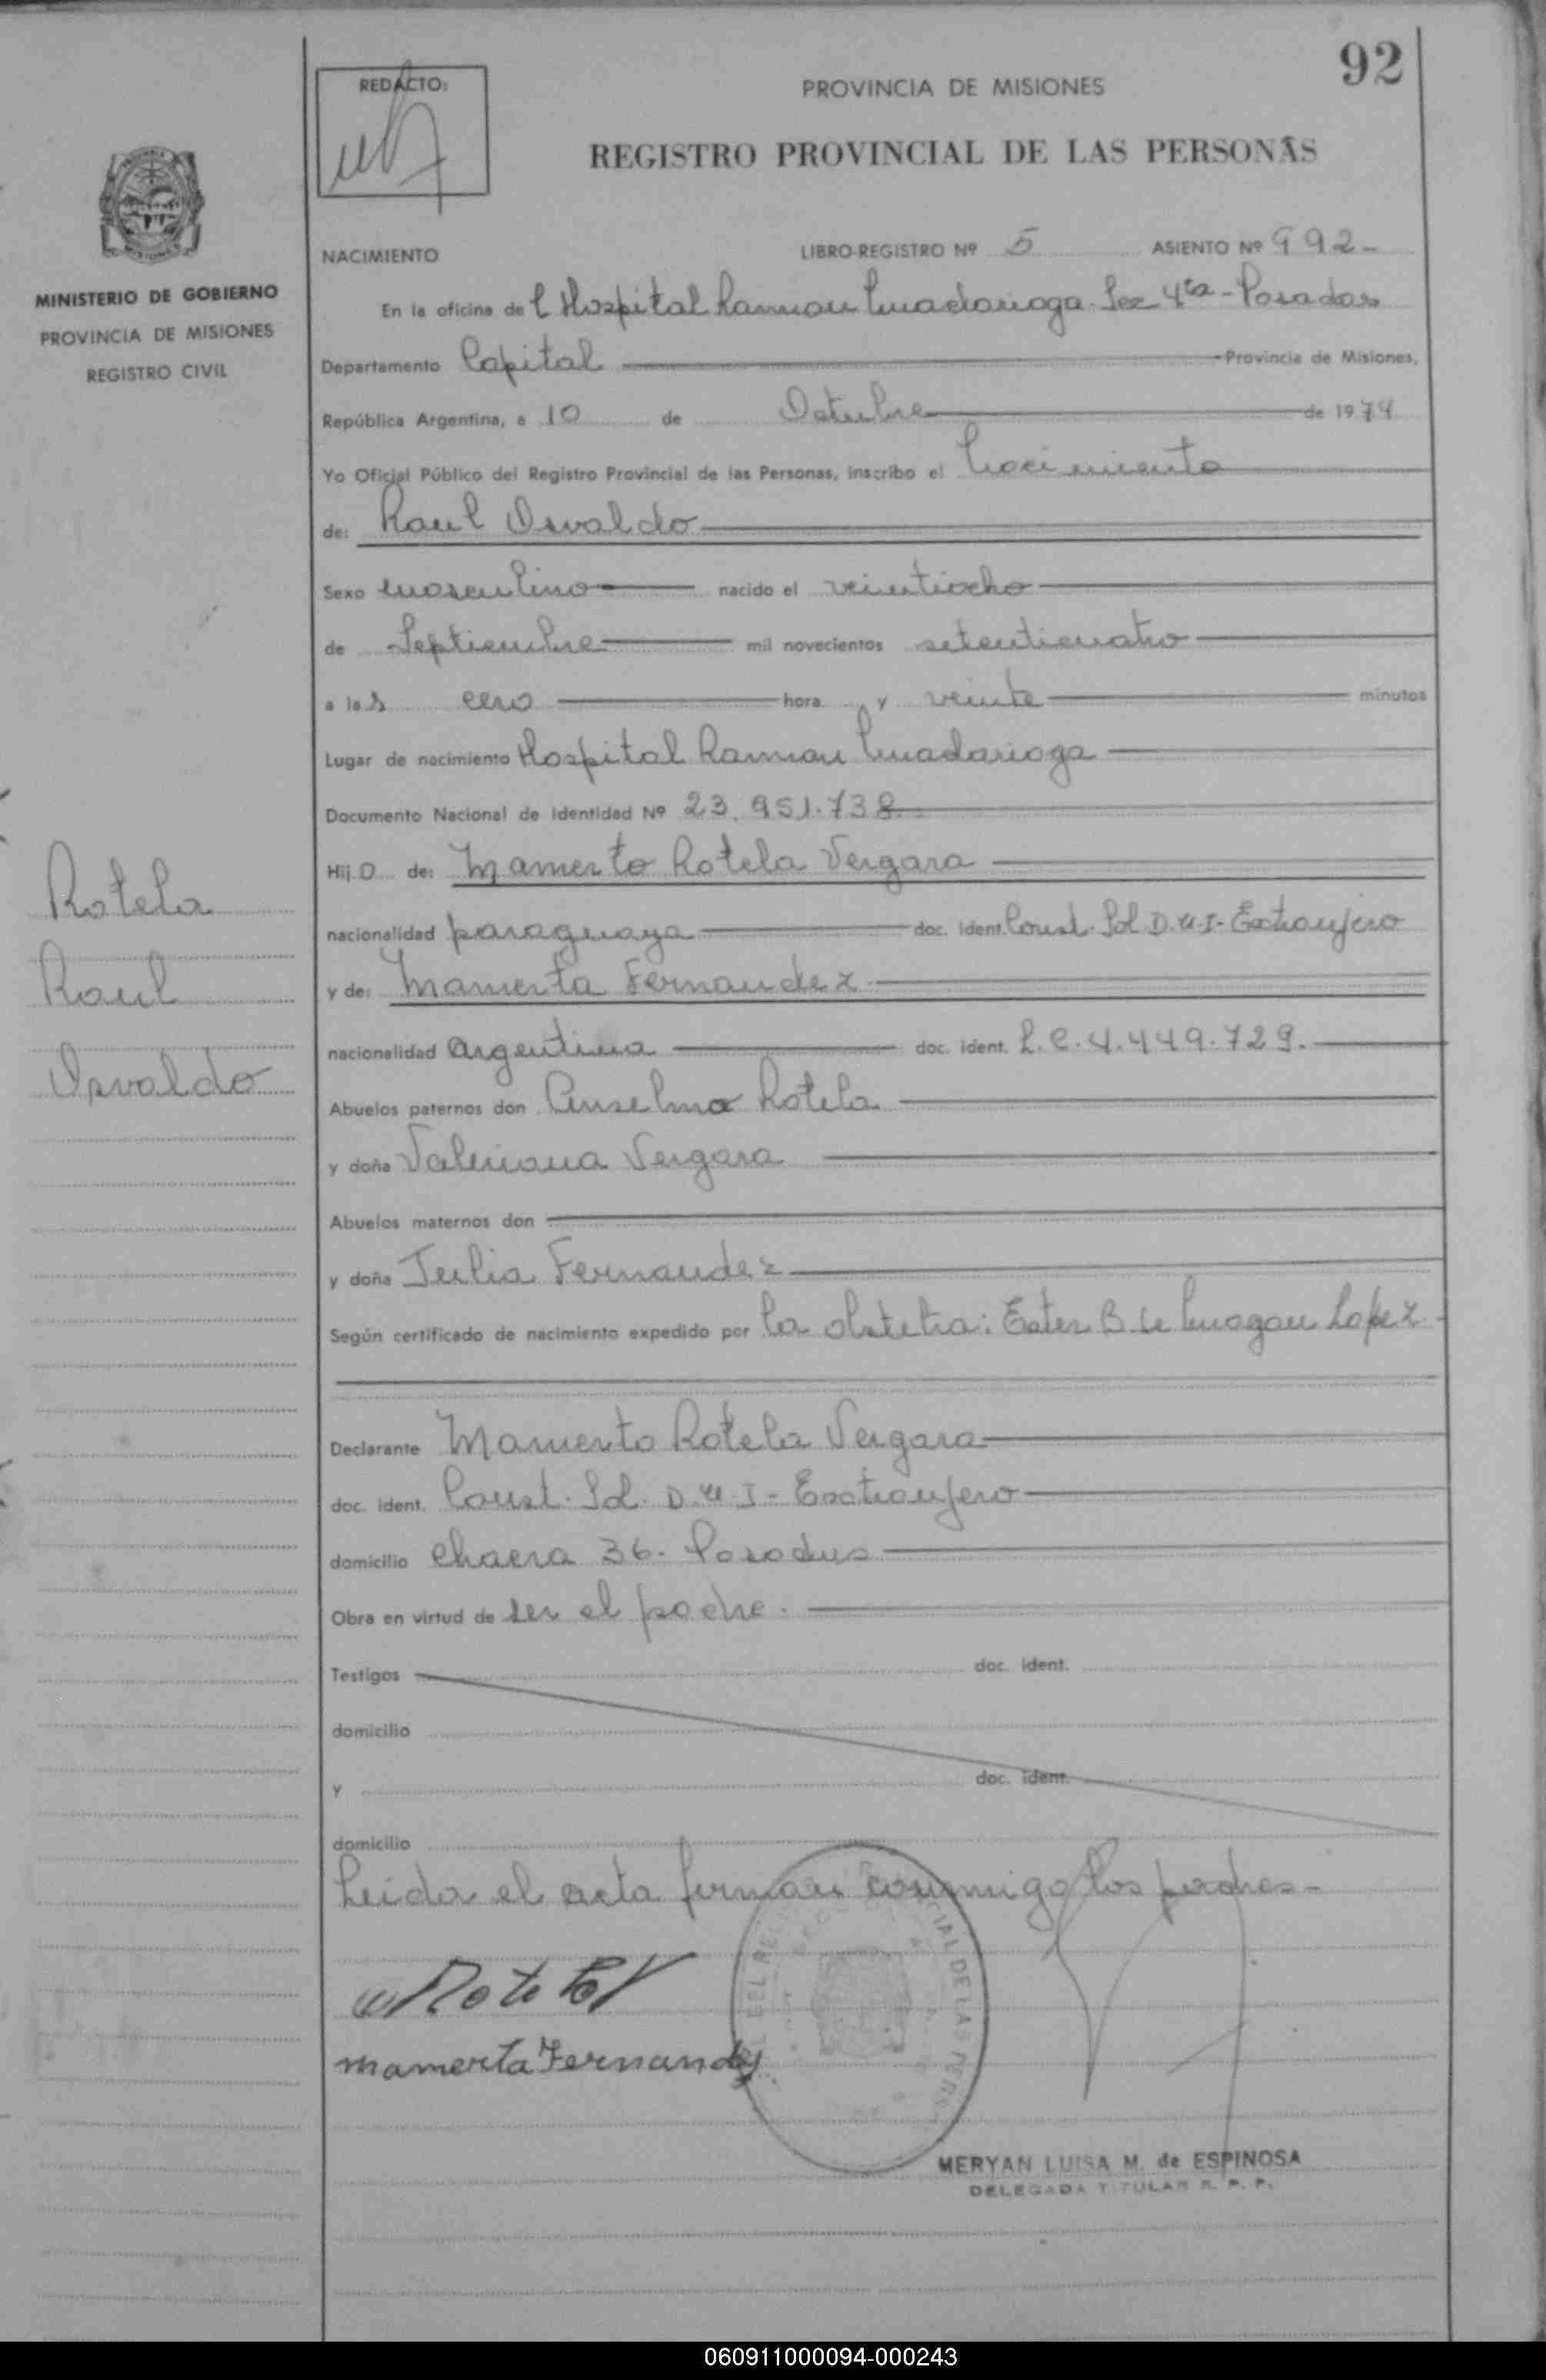 92
REDACTO:
PROVINCIA DE MISIONES
REGISTRO PROVINCIAL DE LAS PERSONAS
MINISTERIO DE GOBIERNO
PROVINCIA DE MISIONES
REGISTRO CIVIL
NACIMIENTO LIBRO-REGISTRO Nº 5 ASIENTO Nº 992-
En la oficina de l Hospital Ramon Madariaga Sec 4ta - Posadas
Departamento Capital Provincia de Misiones,
República Argentina, a 10 de Octubre de 1974
Yo Oficial Público del Registro Provincial de las Personas, inscribo el Nacimiento
de: Raul Osvaldo
Sexo masculino nacido el veintiocho
de Septiembre mil novecientos setenticuatro
a las cero hora y veinte minutos
Lugar de nacimiento Hospital Ramon Madariaga
Documento Nacional de Identidad Nº 23.951.738
Hijo de: Mamerto Rotela Vergara
nacionalidad paraguaya doc. ident. Const. Sol D.U.I- Extranjero
y de: Mamerta Fernandez
nacionalidad Argentina doc. ident. L.C. 4.449.729.
Abuelos paternos don Anselmo Rotela
y doña Valeriana Vergara
Abuelos maternos don
y doña Julia Fernandez
Según certificado de nacimiento expedido por la obstetra: Ester B. Lopez.
Declarante Mamerto Rotela Vergara
doc. ident. Const. Sol. D.U.I- Extranjero
domicilio Chacra 36. Posadas
Obra en virtud de ser el padre.
Testigos doc. ident.
domicilio
y doc. ident.
domicilio
Leida el acta firman conmigo los padres-
Rotela V
mamerta Fernandez
MERYAN LUISA M. de ESPINOSA
DELEGADA TITULAR R. P. P.
Rotela
Raul
Osvaldo
060911000094-000243